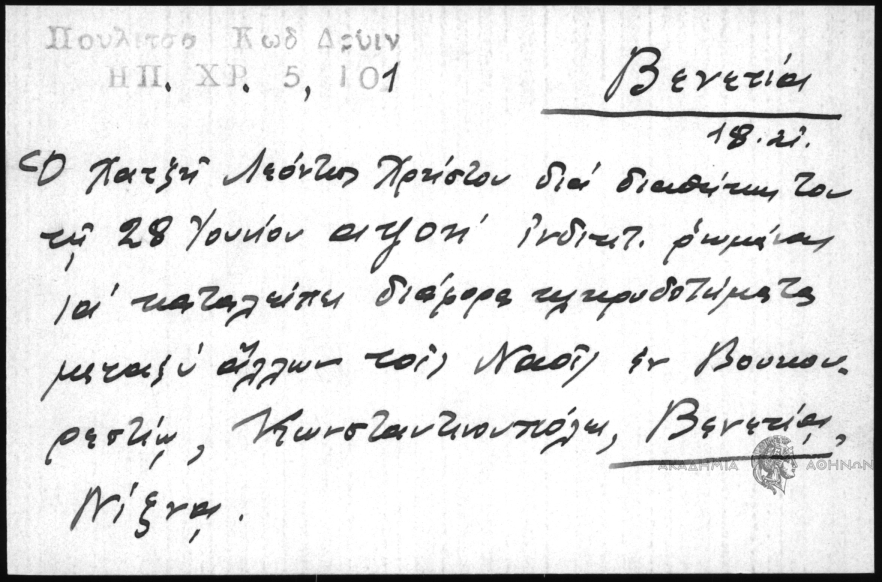 Πουλιτσα Κωδ Δρυιν
ΗΠ. ΧΡ. 5, 101
Βενετία
18.αι.
Ὁ Χατζῆ Λεόντιος Χρήστου διά διαθήκης του
τῇ 28 Ἰουνίου αψοη' ἰνδικτ. ῥωμέικα
ια' καταλείπει διάφορα κληροδοτήματα
μεταξύ ἄλλων τοῖς Ναοῖς ἐν Βουκου-
ρεστίῳ, Κωνσταντινουπόλει, Βενετίᾳ,
Νίζνᾳ.
ΑΚΑΔΗΜΙΑ ΑΘΗΝΩΝ